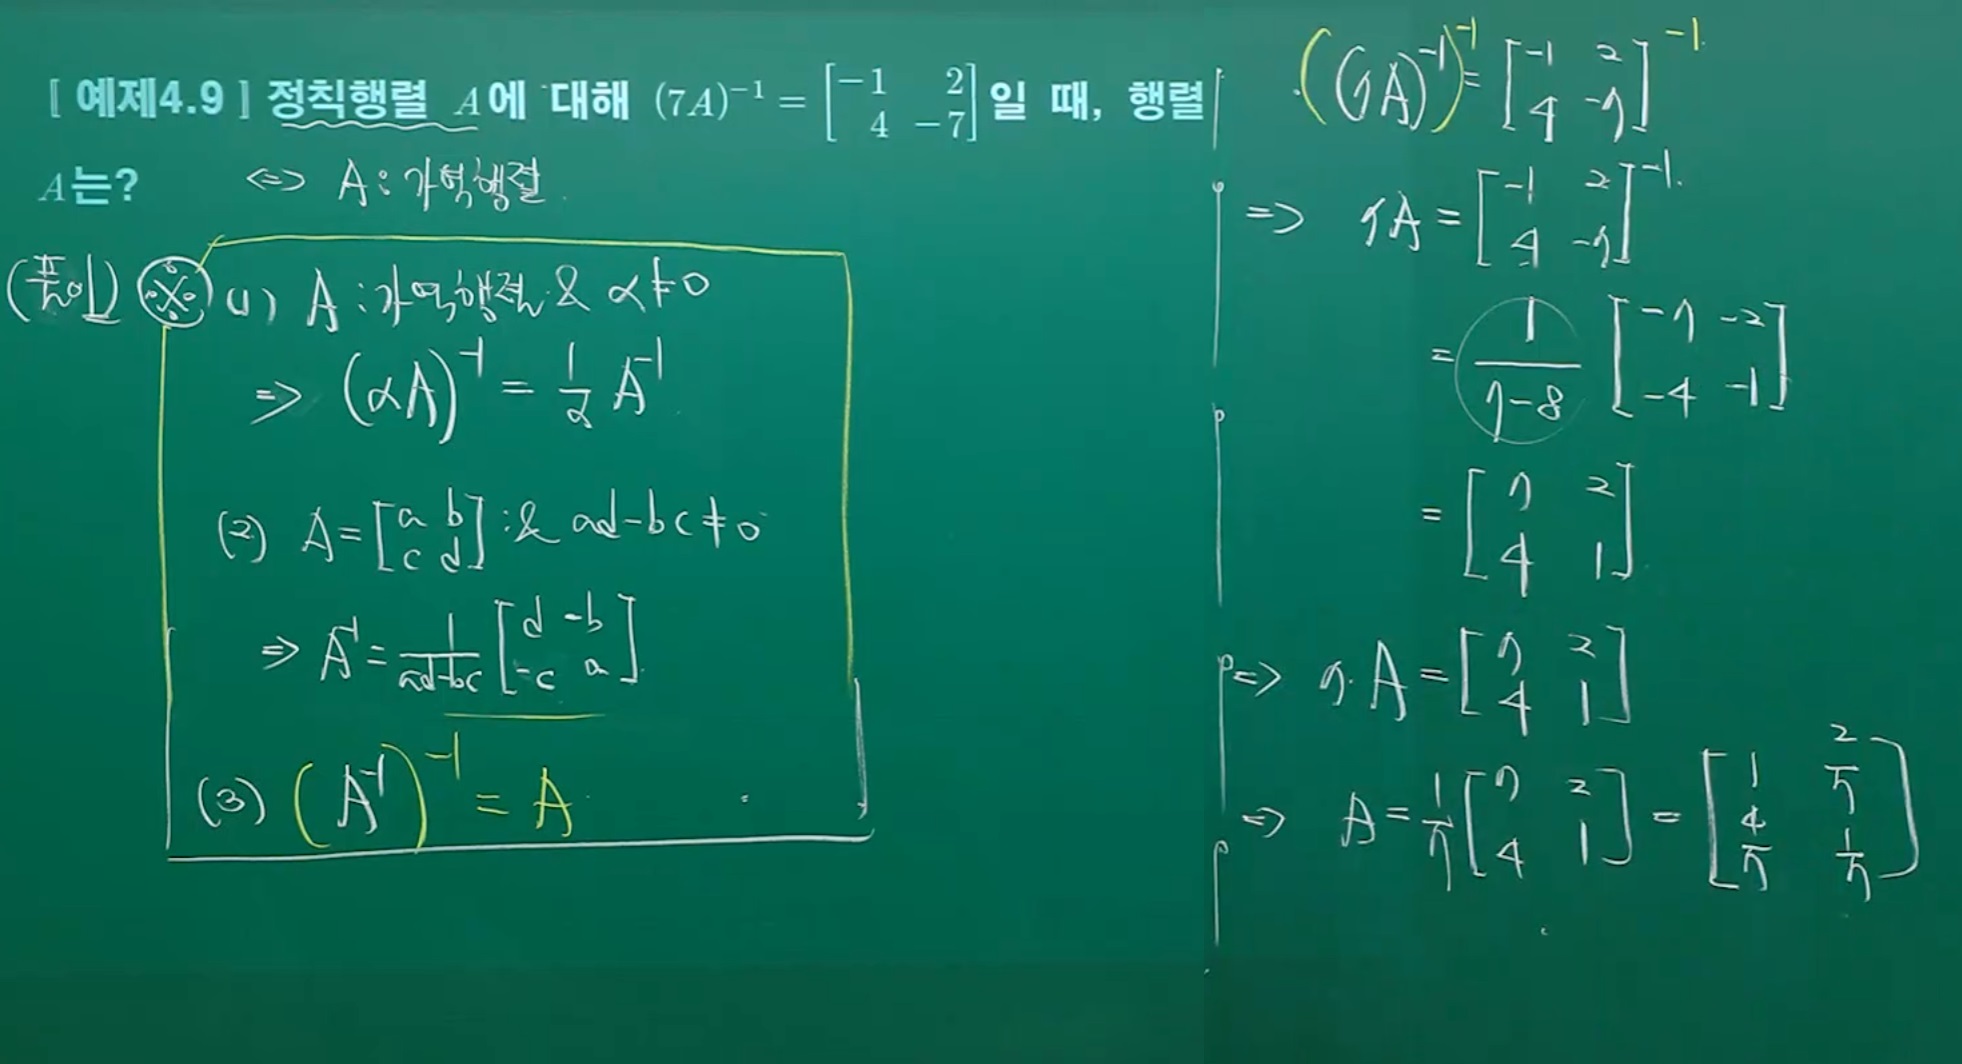 [ 예제4.9 ] 정칙행렬 A에 대해 (7A)⁻¹ = [−1 2; 4 −7] 일 때, 행렬
A는?
<=> A : 가역행렬
(풀이) ※ (1) A : 가역행렬 & α≠0
=> (αA)⁻¹ = 1/α A⁻¹
(2) A = [a b; c d] : & ad-bc≠0
=> A⁻¹ = 1/(ad-bc) [d -b; -c a]
(3) (A⁻¹)⁻¹ = A
((7A)⁻¹)⁻¹ = [-1 2; 4 -7]⁻¹
=> 7A = [-1 2; 4 -7]⁻¹
= 1/(7-8) [-7 -2; -4 -1]
= [7 2; 4 1]
=> 7·A = [7 2; 4 1]
=> A = 1/7 [7 2; 4 1] = [1 2/7; 4/7 1/7]